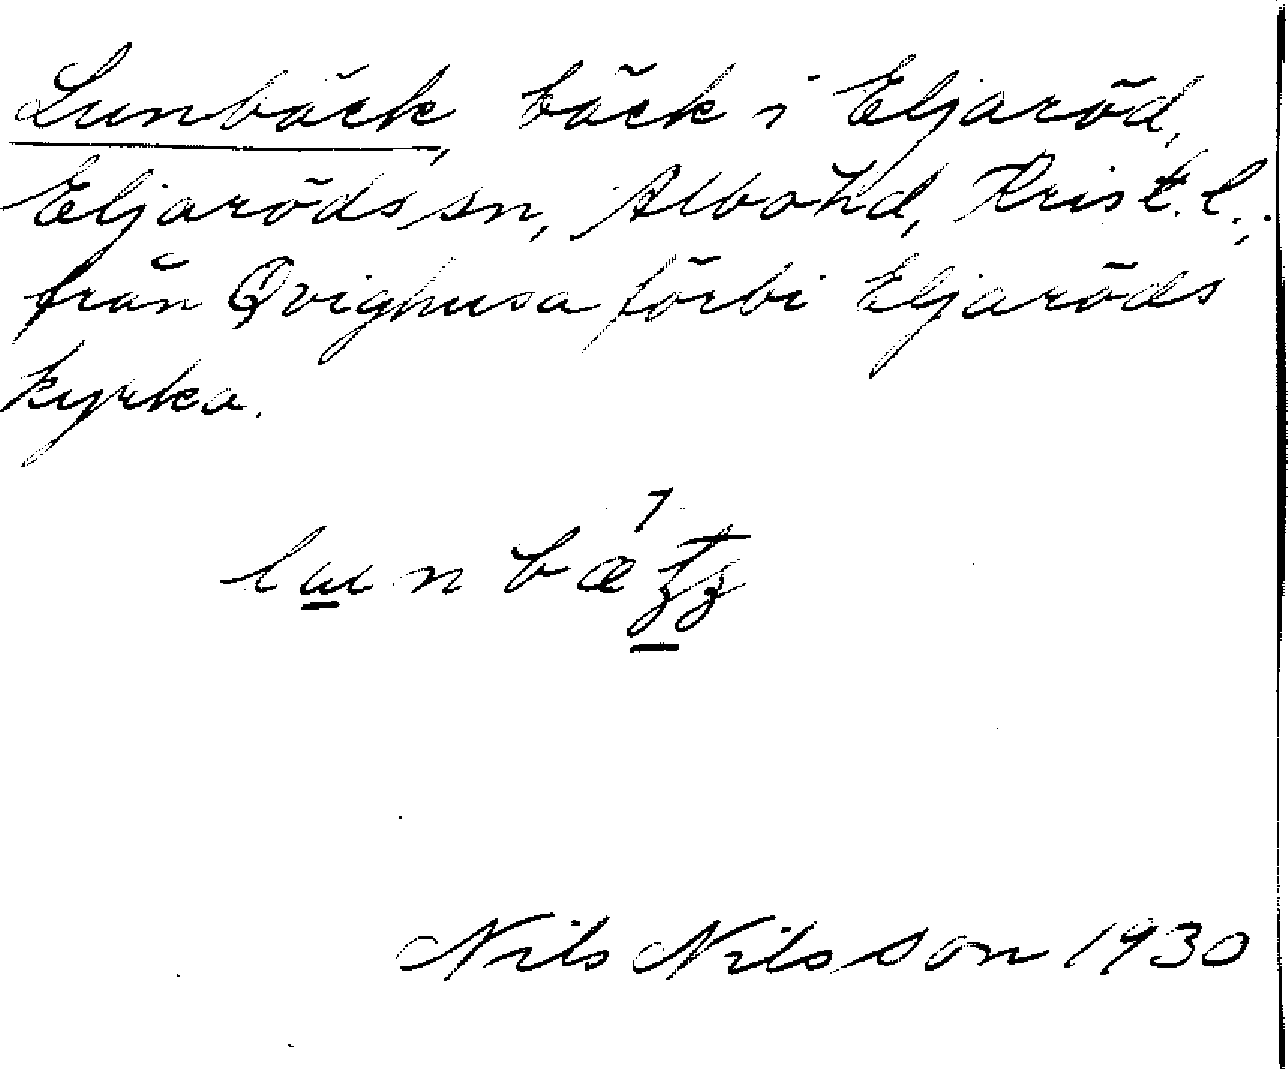 Lunbäck, bäck i Eljaröd,
Eljaröds sn, Albo hd, Krist. l.,
från Qvighusa förbi Eljaröds
kyrka.
Nils Nilsson 1930